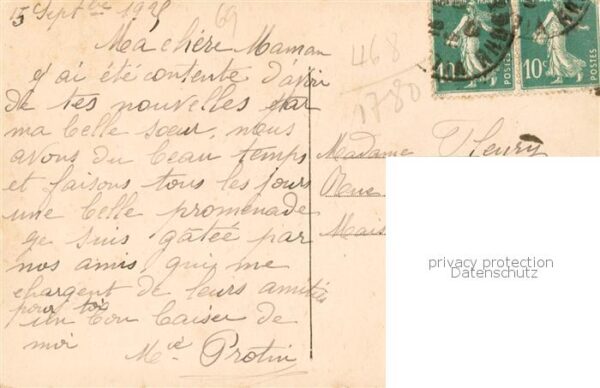 15 Septbre 19
69
Ma chère Maman
j'ai été contente d'avoir
de tes nouvelles par
ma belle sœur, nous
avons du beau temps
et faisons tous les jours
une belle promenade
je suis gâtée par
nos amis, qui me
chargent de leurs amitiés
pour toi
un bon baiser de
moi
Mie Protin
468
1780
10c
POSTES
10c
POSTES
Madame Fleury
Rue
Mais
privacy protection
Datenschutz